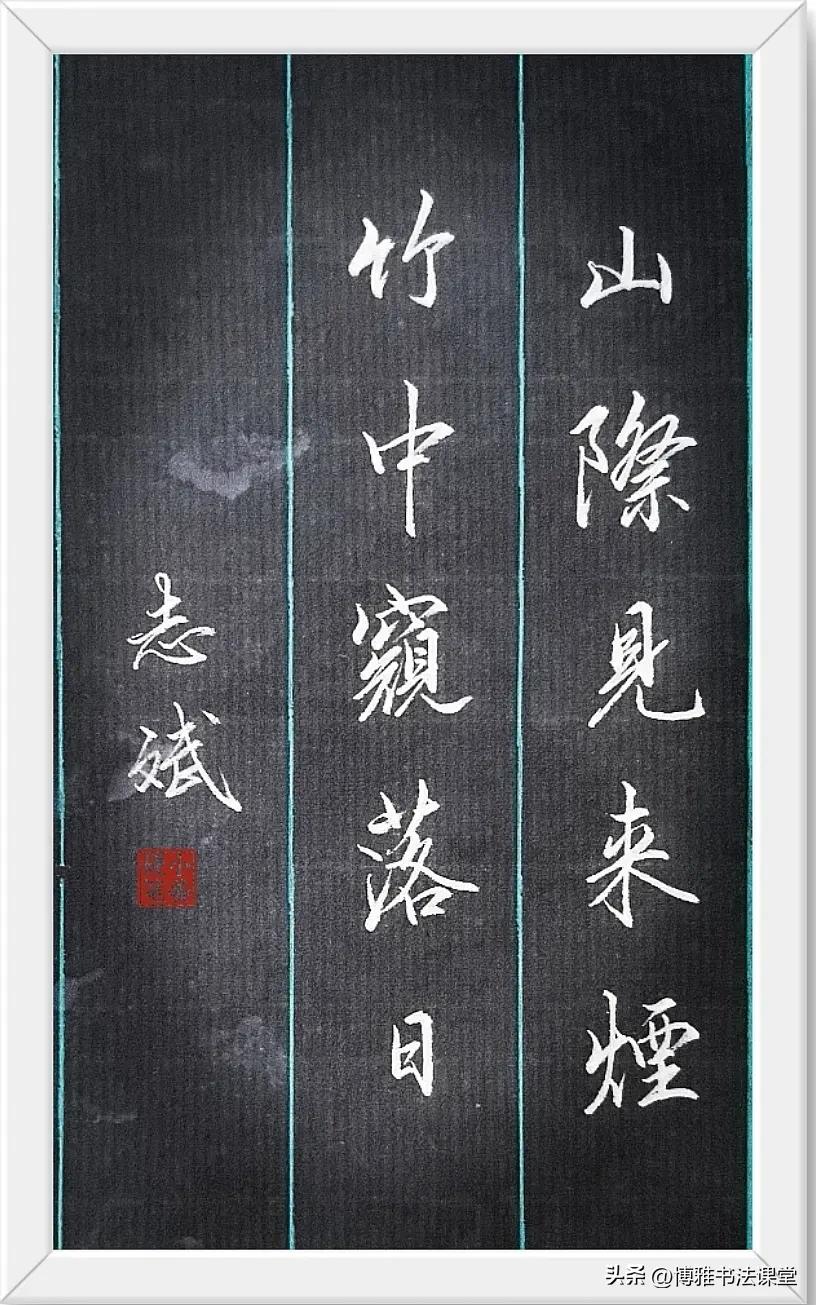 山際見来煙
竹中窺落日
志斌
头条 @博雅书法课堂